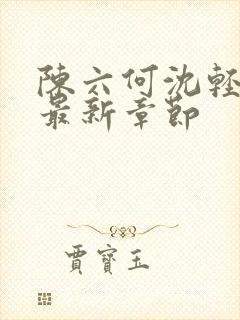 陳六何沈輕
最新章節
賈寶玉